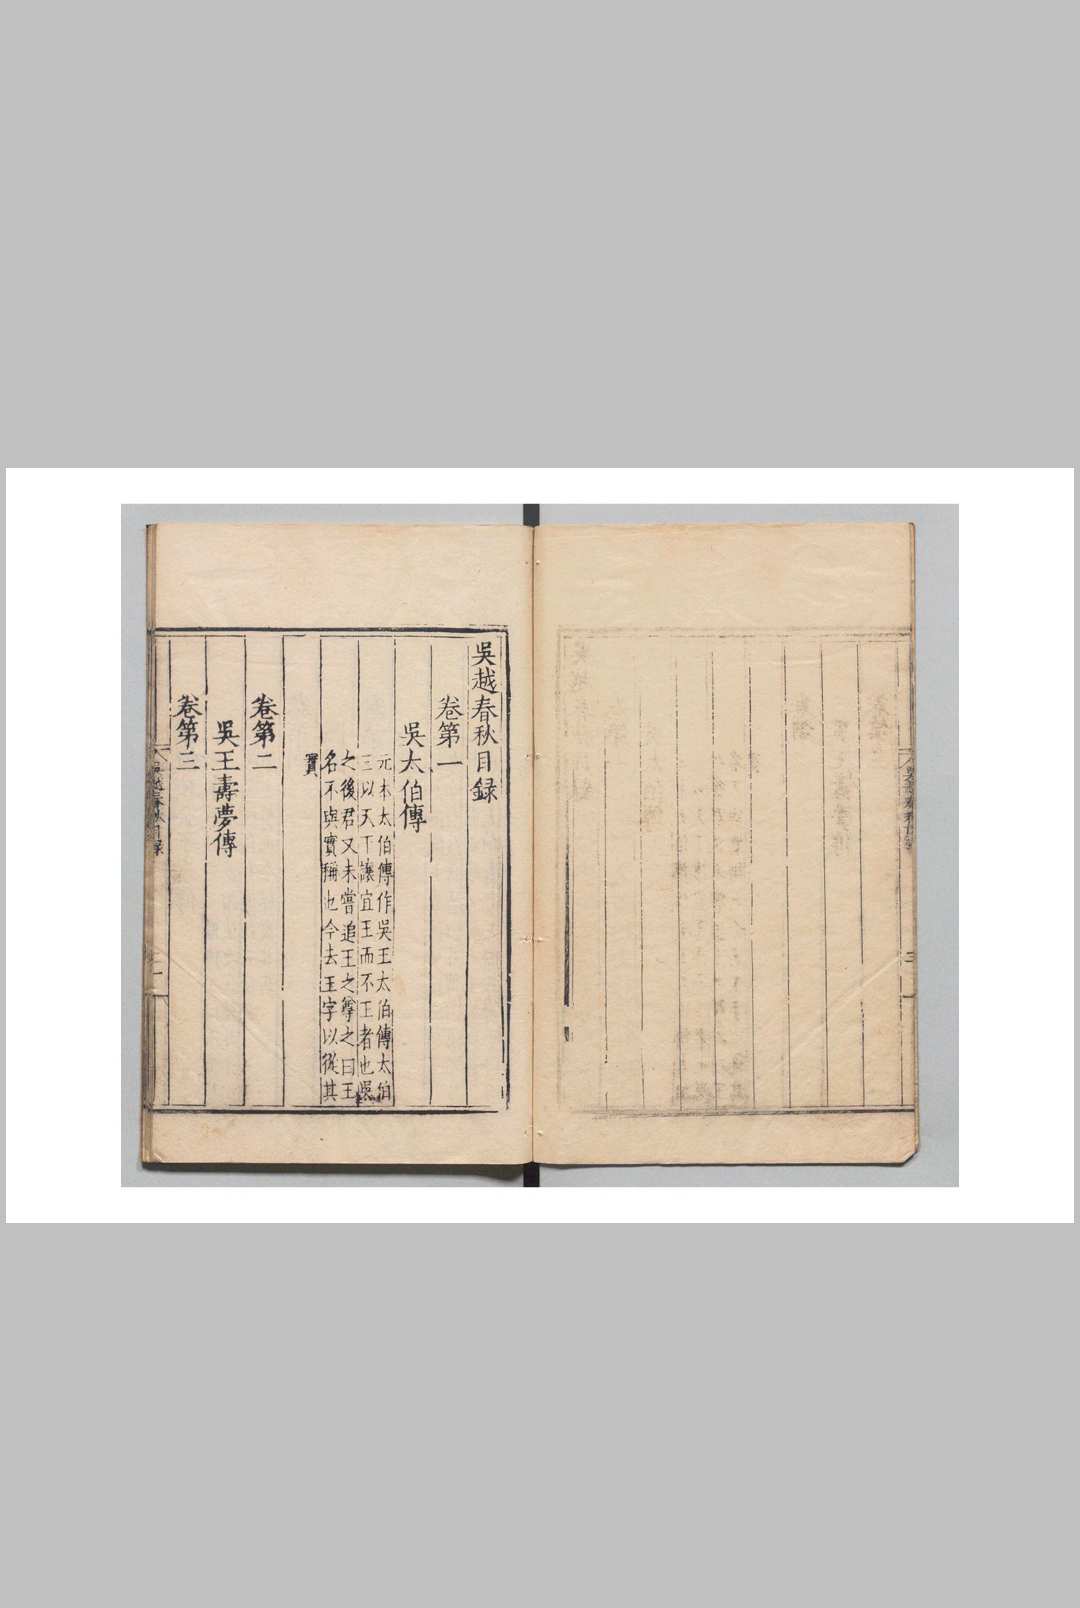 吳越春秋目録
卷第一
吳太伯傳
元本太伯傳作吳王太伯傳太伯
三以天下讓宜王而不王者也吳
之後君又未嘗追王之尊之曰王
名不與實稱也今去王字以從其
實
卷第二
吳王壽夢傳
卷第三